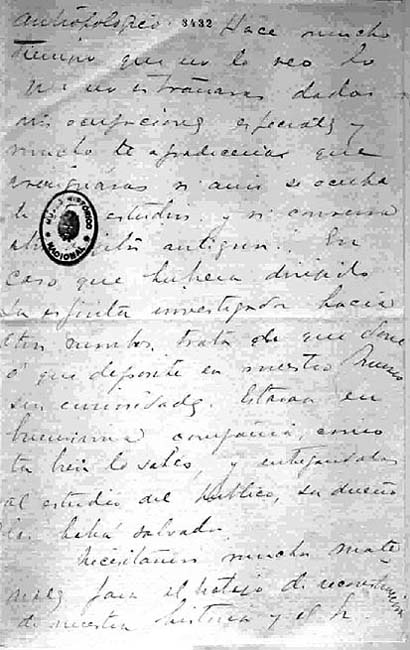 antropológico. 3432 Hace mucho
tiempo que no lo veo lo
que no estrañaras dadas
mis ocupaciones especiales y
mucho te agradeceria que
averiguaras si aun se ocupa
de estudios y si conserva
antigua. En
caso que hubiera dirigido
su espiritu investigador hacia
otros rumbos, trata de que done
ó que deposite en nuestro Museo
sus curiosidades. Estaran en
buenisima compañia, como
tu bien lo sabes, y entregandolas
al estudio del publico, su dueño
las habrá salvado.
Necesitamos muchos mate-
riales para el trabajo de reconstruccion
de nuestra historia y el
MUSEO HISTORICO
NACIONAL